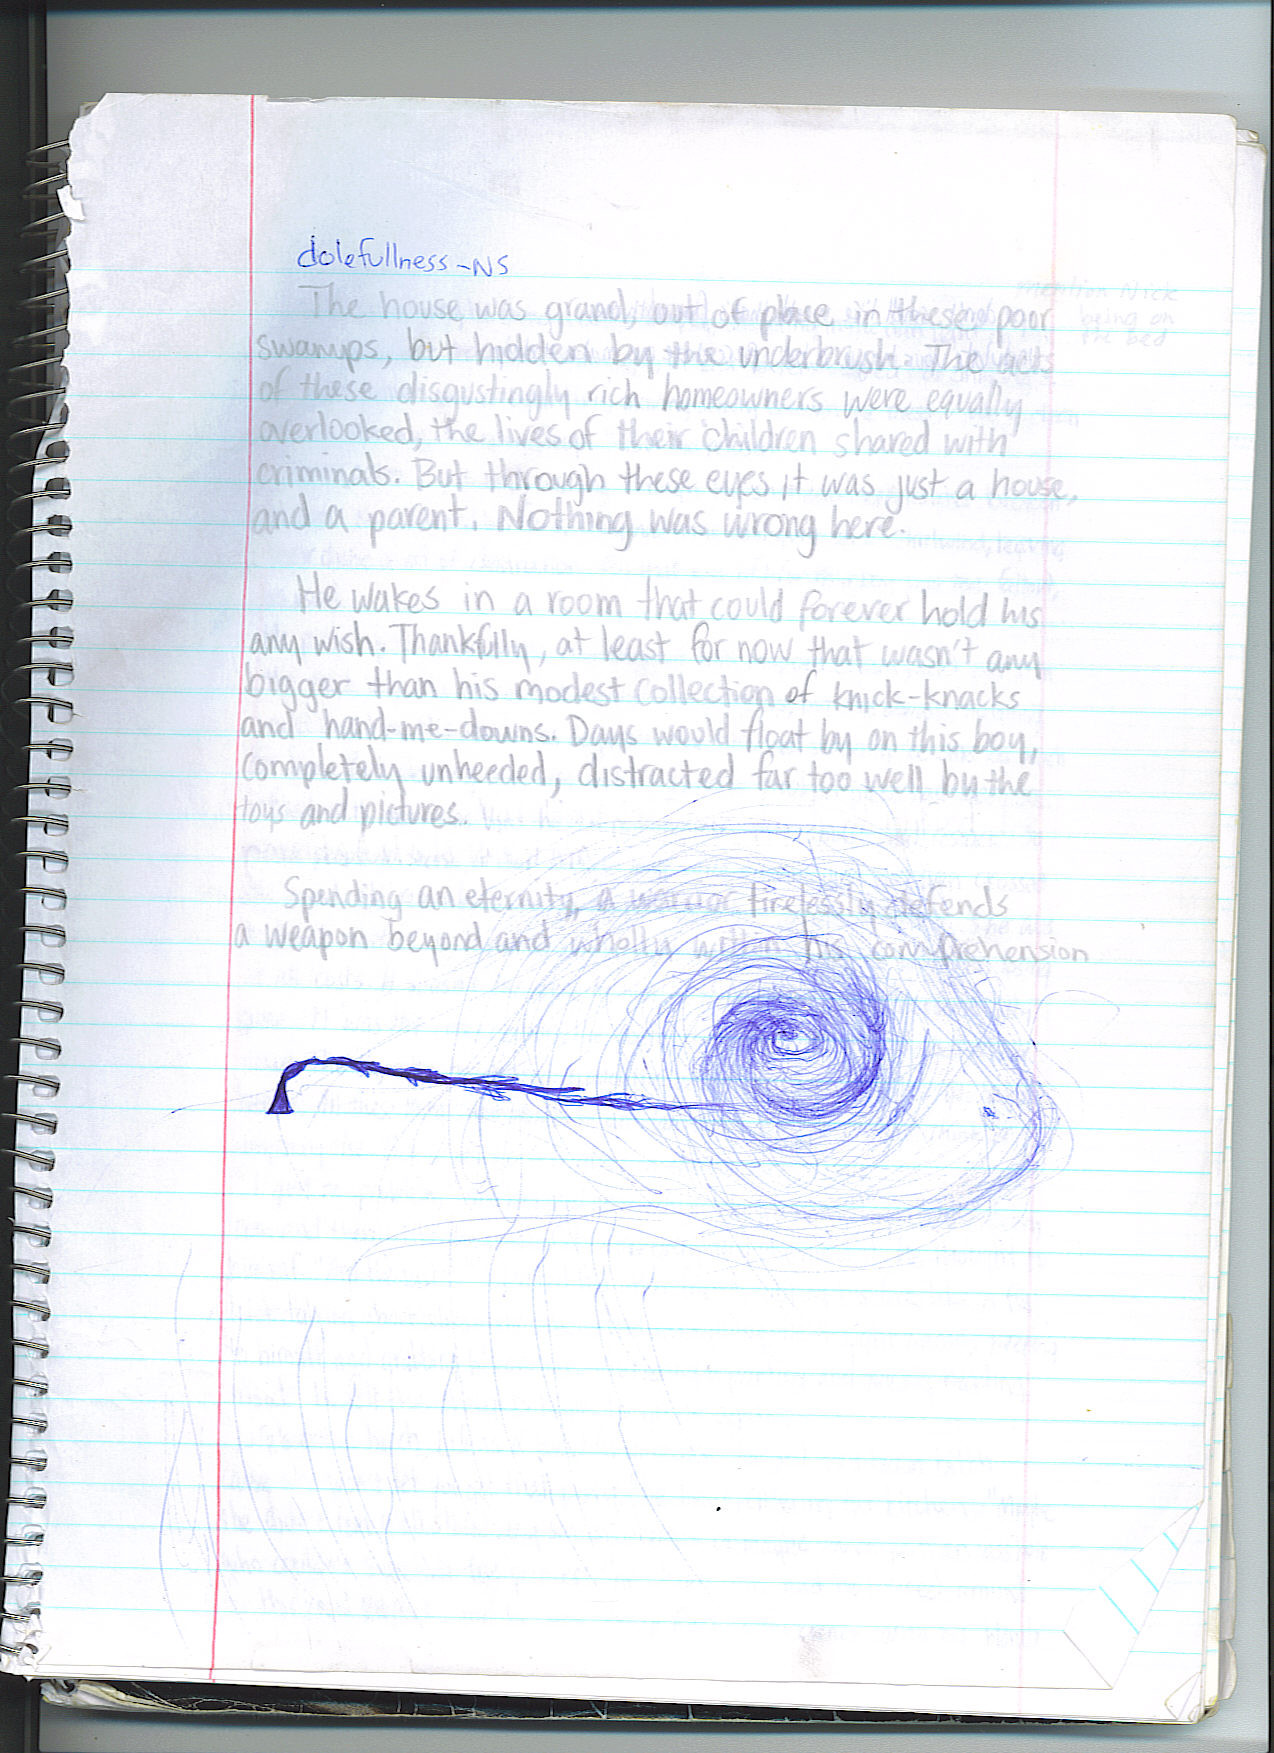 dolefullness-NS
mention Nick
being on
the bed
The house was grand, out of place in these poor
swamps, but hidden by the underbrush. The acts
of these disgustingly rich homeowners were equally
overlooked, the lives of their children shared with
criminals. But through these eyes it was just a house,
and a parent. Nothing was wrong here.
He wakes in a room that could forever hold his
any wish. Thankfully, at least for now that wasn't any
bigger than his modest collection of knick-knacks
and hand-me-downs. Days would float by on this boy,
completely unheeded, distracted far too well by the
toys and pictures.
Spending an eternity, a warrior tirelessly defends
a weapon beyond and wholly within his comprehension